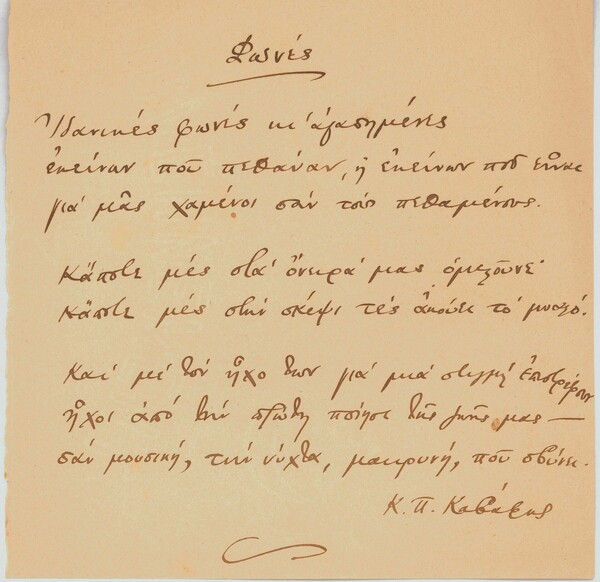 Φωνές
Ἰδανικές φωνές κι' ἀγαπημένες
ἐκείνων ποῦ πεθάναν, ἤ ἐκείνων ποῦ εἶναι
γιά μᾶς χαμένοι σάν τούς πεθαμένους.
Κάποτε μές στά ὄνειρά μας ὁμιλοῦνε·
κάποτε μές στήν σκέψι τές ἀκούει τό μυαλό.
Καί μέ τόν ἦχο των γιά μιά στιγμή ἐπιστρέφουν
ἦχοι ἀπό τήν πρώτη ποίησι τῆς ζωῆς μας —
σάν μουσική, τήν νύχτα, μακρυνή, ποῦ σβύνει.
Κ. Π. Καβάφης